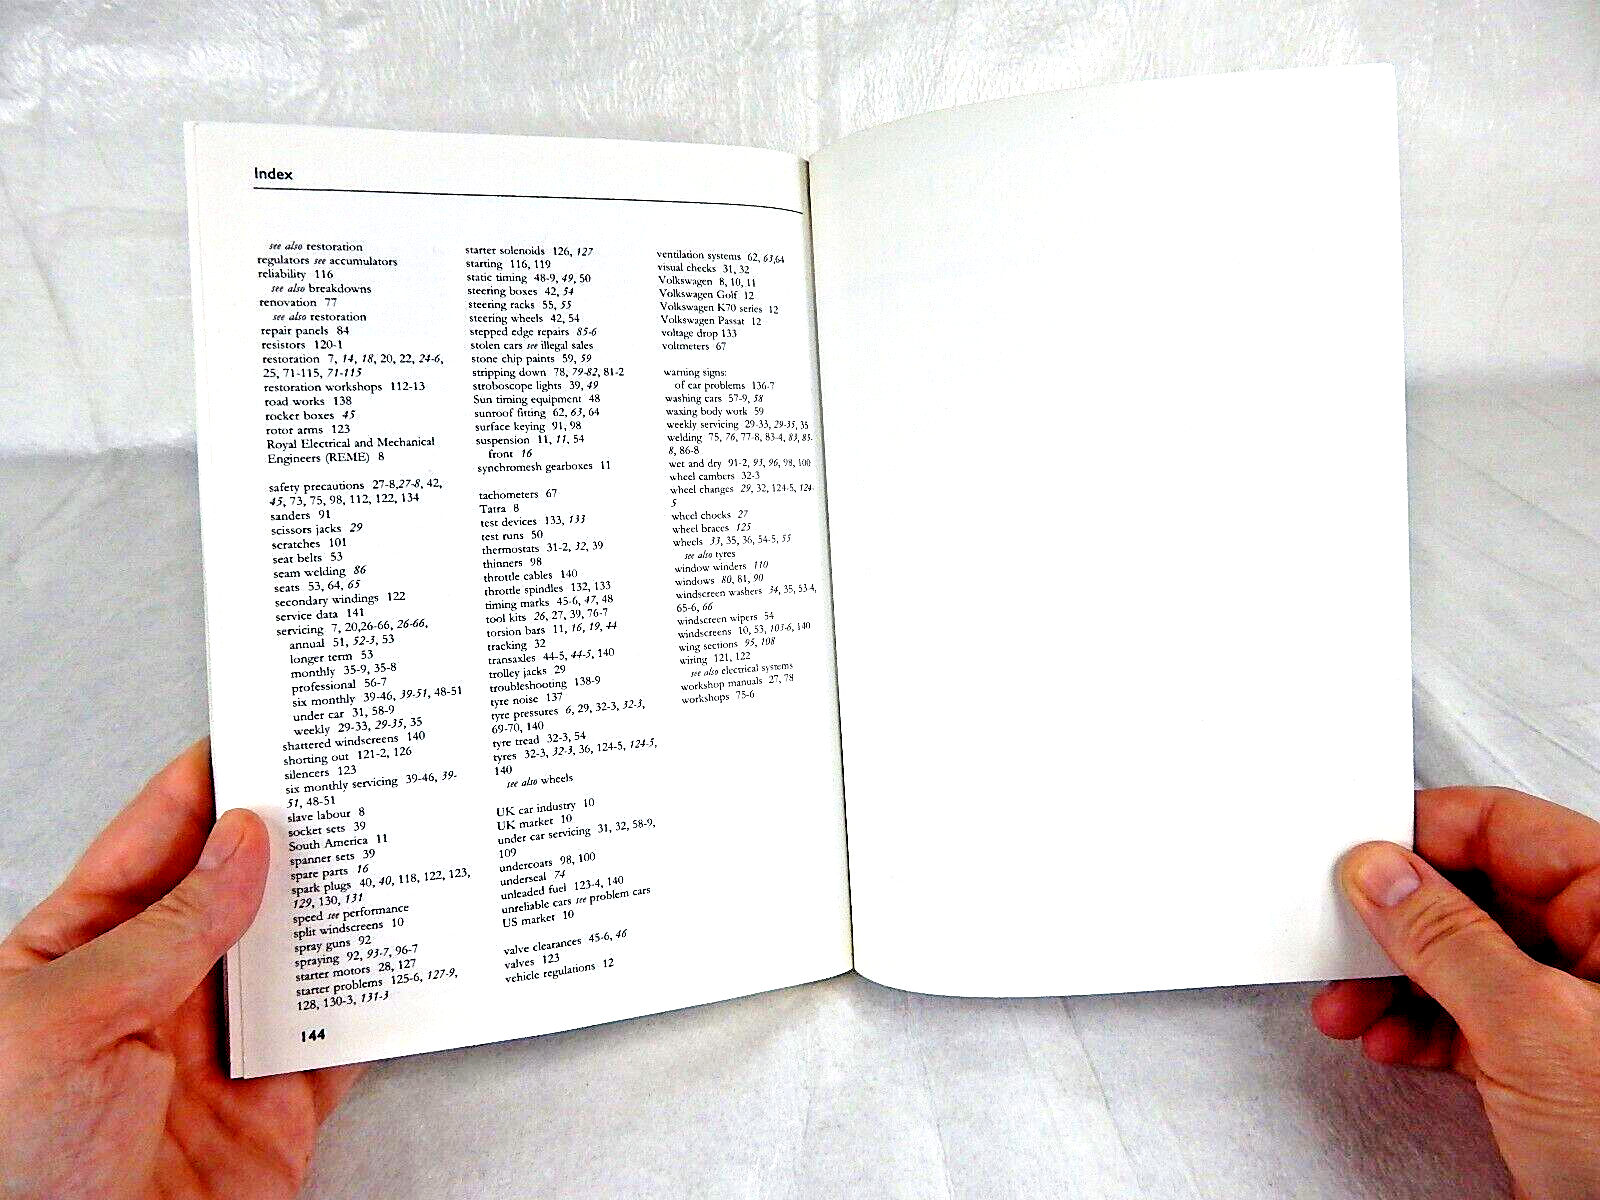 Index
see also restoration
regulators see accumulators
reliability 116
see also breakdowns
renovation 77
see also restoration
repair panels 84
resistors 120-1
restoration 7, 14, 18, 20, 22, 24-6,
25, 71-115, 71-115
restoration workshops 112-13
road works 138
rocker boxes 45
rotor arms 123
Royal Electrical and Mechanical
Engineers (REME) 8
safety precautions 27-8,27-8, 42,
45, 73, 75, 98, 112, 122, 134
sanders 91
scissors jacks 29
scratches 101
seat belts 53
seam welding 86
seats 53, 64, 65
secondary windings 122
service data 141
servicing 7, 20,26-66, 26-66,
annual 51, 52-3, 53
longer term 53
monthly 35-9, 35-8
professional 56-7
six monthly 39-46, 39-51, 48-51
under car 31, 58-9
weekly 29-33, 29-35, 35
shattered windscreens 140
shorting out 121-2, 126
silencers 123
six monthly servicing 39-46, 39-
51, 48-51
slave labour 8
socket sets 39
South America 11
spanner sets 39
spare parts 16
spark plugs 40, 40, 118, 122, 123,
129, 130, 131
speed see performance
split windscreens 10
spray guns 92
spraying 92, 93-7, 96-7
starter motors 28, 127
starter problems 125-6, 127-9,
128, 130-3, 131-3
144
starter solenoids 126, 127
starting 116, 119
static timing 48-9, 49, 50
steering boxes 42, 54
steering racks 55, 55
steering wheels 42, 54
stepped edge repairs 85-6
stolen cars see illegal sales
stone chip paints 59, 59
stripping down 78, 79-82, 81-2
stroboscope lights 39, 49
Sun timing equipment 48
sunroof fitting 62, 63, 64
surface keying 91, 98
suspension 11, 11, 54
front 16
synchromesh gearboxes 11
tachometers 67
Tatra 8
test devices 133, 133
test runs 50
thermostats 31-2, 32, 39
thinners 98
throttle cables 140
throttle spindles 132, 133
timing marks 45-6, 47, 48
tool kits 26, 27, 39, 76-7
torsion bars 11, 16, 19, 44
tracking 32
transaxles 44-5, 44-5, 140
trolley jacks 29
troubleshooting 138-9
tyre noise 137
tyre pressures 6, 29, 32-3, 32-3,
69-70, 140
tyre tread 32-3, 54
tyres 32-3, 32-3, 36, 124-5, 124-5,
140
see also wheels
UK car industry 10
UK market 10
under car servicing 31, 32, 58-9,
109
undercoats 98, 100
underseal 74
unleaded fuel 123-4, 140
unreliable cars see problem cars
US market 10
valve clearances 45-6, 46
valves 123
vehicle regulations 12
ventilation systems 62, 63,64
visual checks 31, 32
Volkswagen 8, 10, 11
Volkswagen Golf 12
Volkswagen K70 series 12
Volkswagen Passat 12
voltage drop 133
voltmeters 67
warning signs:
of car problems 136-7
washing cars 57-9, 58
waxing body work 59
weekly servicing 29-33, 29-35, 35
welding 75, 76, 77-8, 83-4, 83, 85-
8, 86-8
wet and dry 91-2, 93, 96, 98, 100
wheel cambers 32-3
wheel changes 29, 32, 124-5, 124-
5
wheel chocks 27
wheel braces 125
wheels 33, 35, 36, 54-5, 55
see also tyres
window winders 110
windows 80, 81, 90
windscreen washers 34, 35, 53-4,
65-6, 66
windscreen wipers 54
windscreens 10, 53, 103-6, 140
wing sections 95, 108
wiring 121, 122
see also electrical systems
workshop manuals 27, 78
workshops 75-6